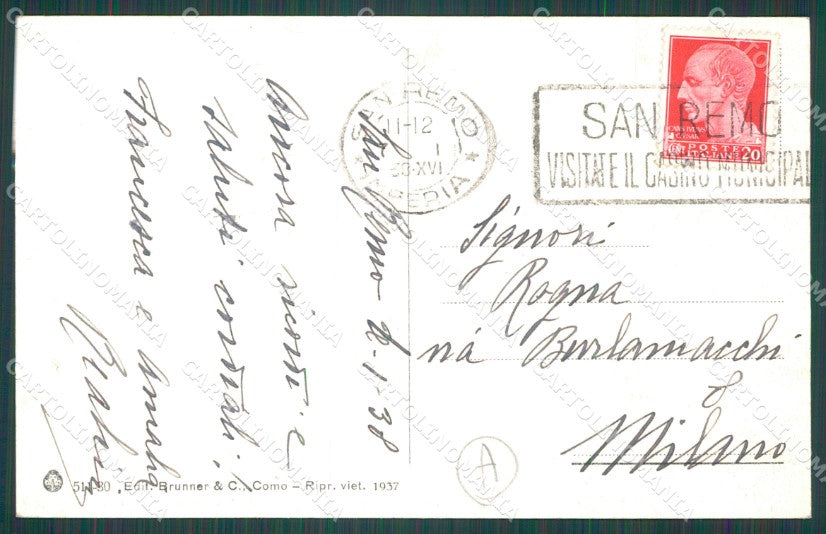 San Remo 2-1-38
Ancora ricordi e
saluti cordiali!
Francesca e Amalia
SAN REMO
11-12
1
38-XVI
IMPERIA
SAN REMO
VISITATE IL CASINO MUNICIPALE
POSTE
ITALIANE
CENT 20
Signori
Rogna
Via Burlamacchi
8
Milano
A
511-30 Edit. Brunner & C., Como – Ripr. viet. 1937
CARTOLINOMANIA